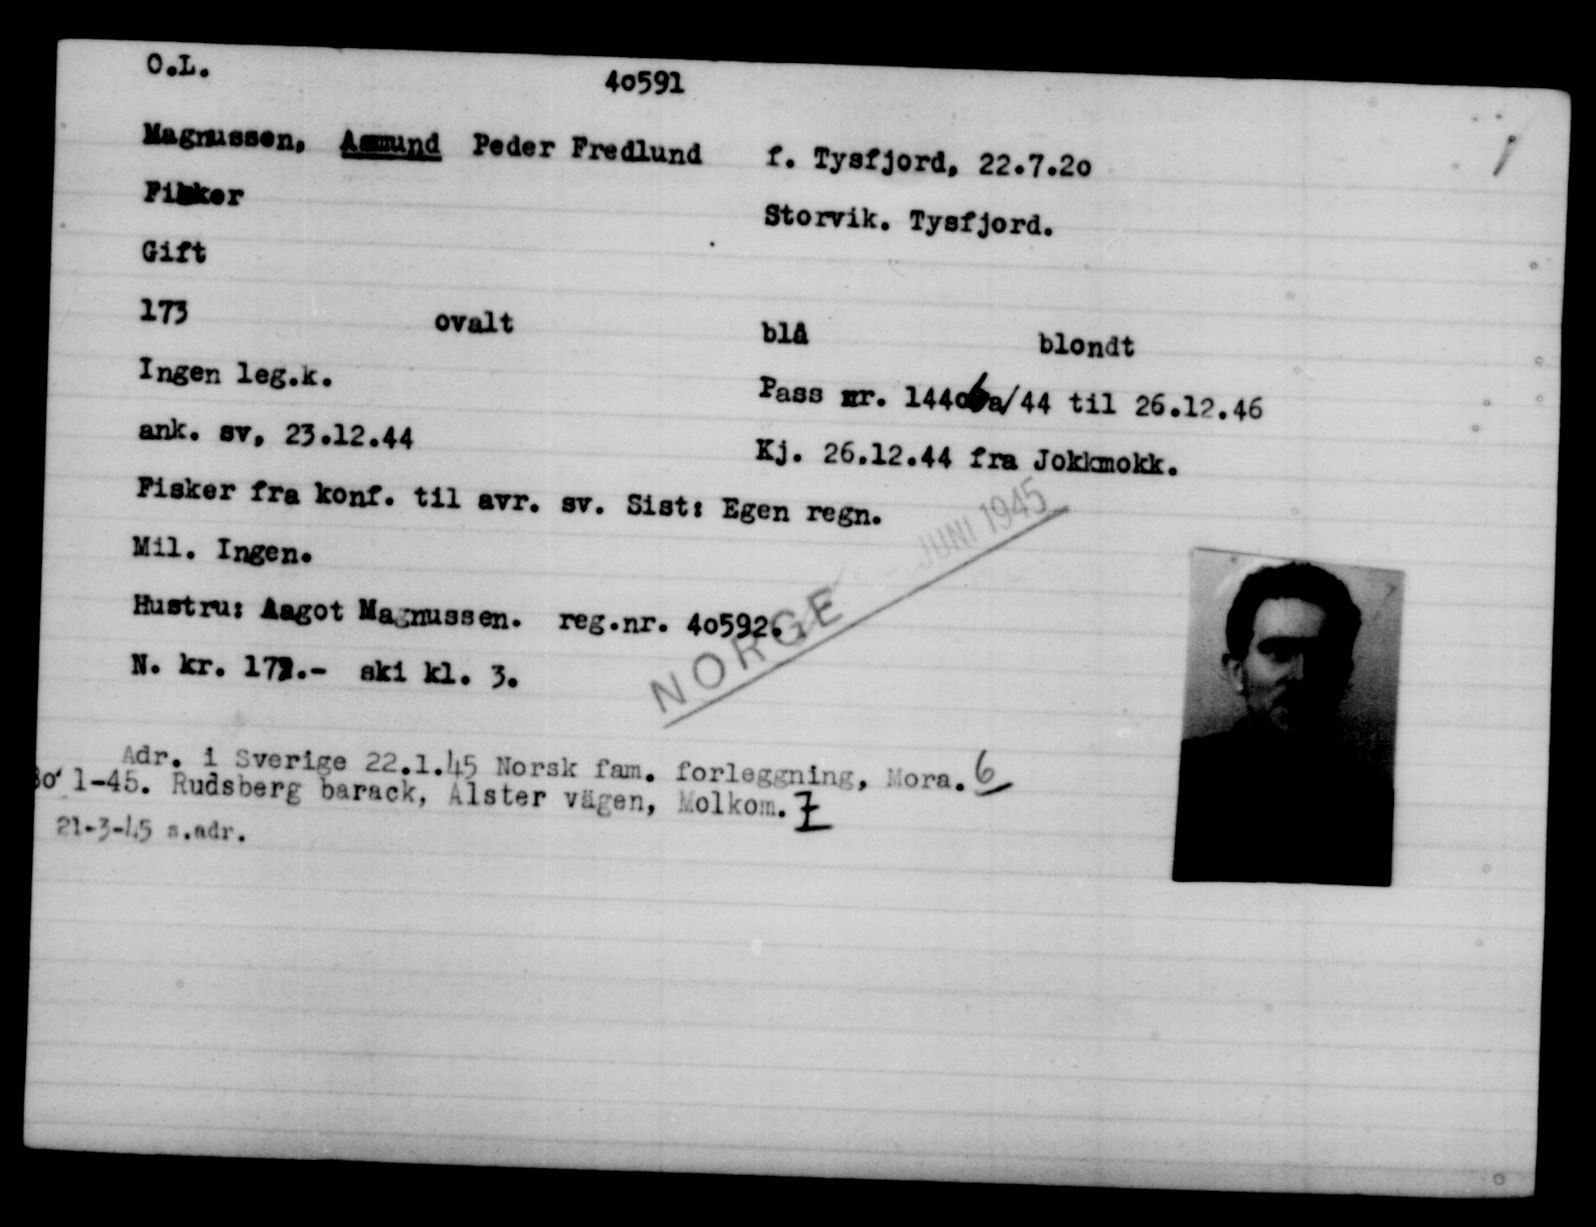 O.L. 40591
Magnussen, Asmund Peder Fredlund f. Tysfjord, 22.7.2o
Fisker Storvik. Tysfjord.
Gift
173 ovalt blå blondt
Ingen leg.k. Pass nr. 144o6a/44 til 26.12.46
ank. sv, 23.12.44 Kj. 26.12.44 fra Jokkmokk.
Fisker fra konf. til avr. sv. Sist: Egen regn.
JUNI 1945
Mil. Ingen.
Hustru: Aagot Magnussen. reg.nr. 4o592.
NORGE
N. kr. .- ski kl. 3.
Adr. i Sverige 22.1.45 Norsk fam. forleggning, Mora. 6
1-45. Rudsberg barack, Alster vägen, Molkom. 7
21-3-45 s.adr.